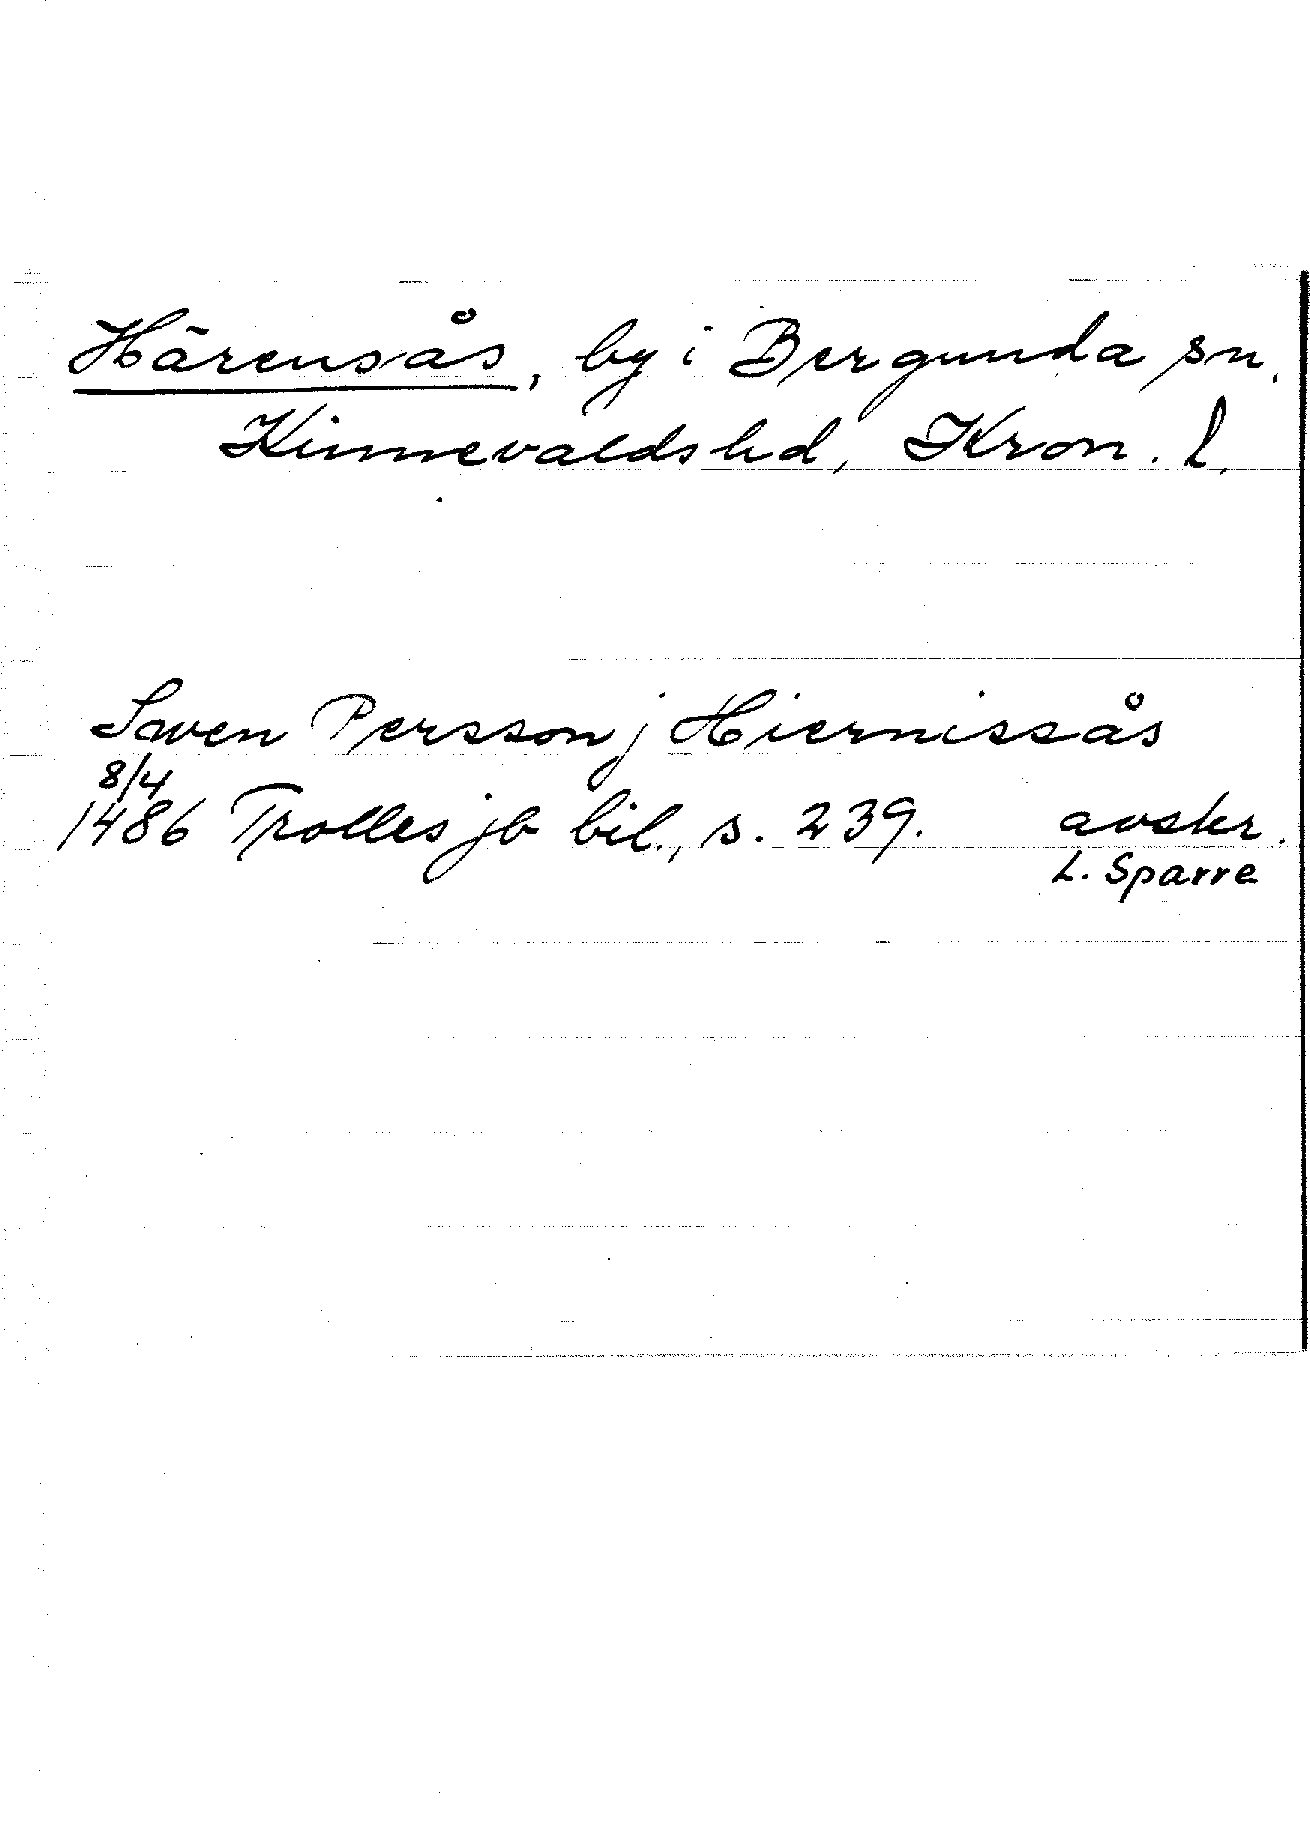 Härensås, by i Bergunda sn,
Kinnevaldshd, Kron. l.
Swen Persson j Hiernissås
8/4
1486 Trolles jb bil., s. 239. avskr.
L. Sparre